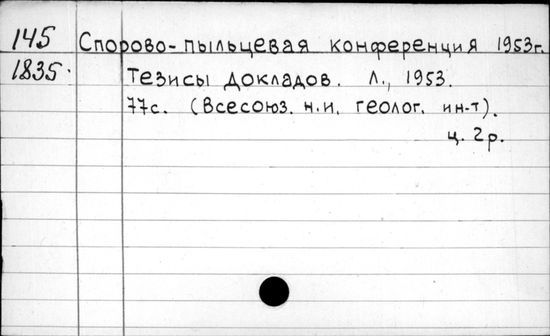 145 Спорово-пыльцевая конференция 1953г.
1835. Тезисы докладов. Л., 1953.
77с. (Всесоюз. н.и. геолог. ин-т).
ц. 2р.